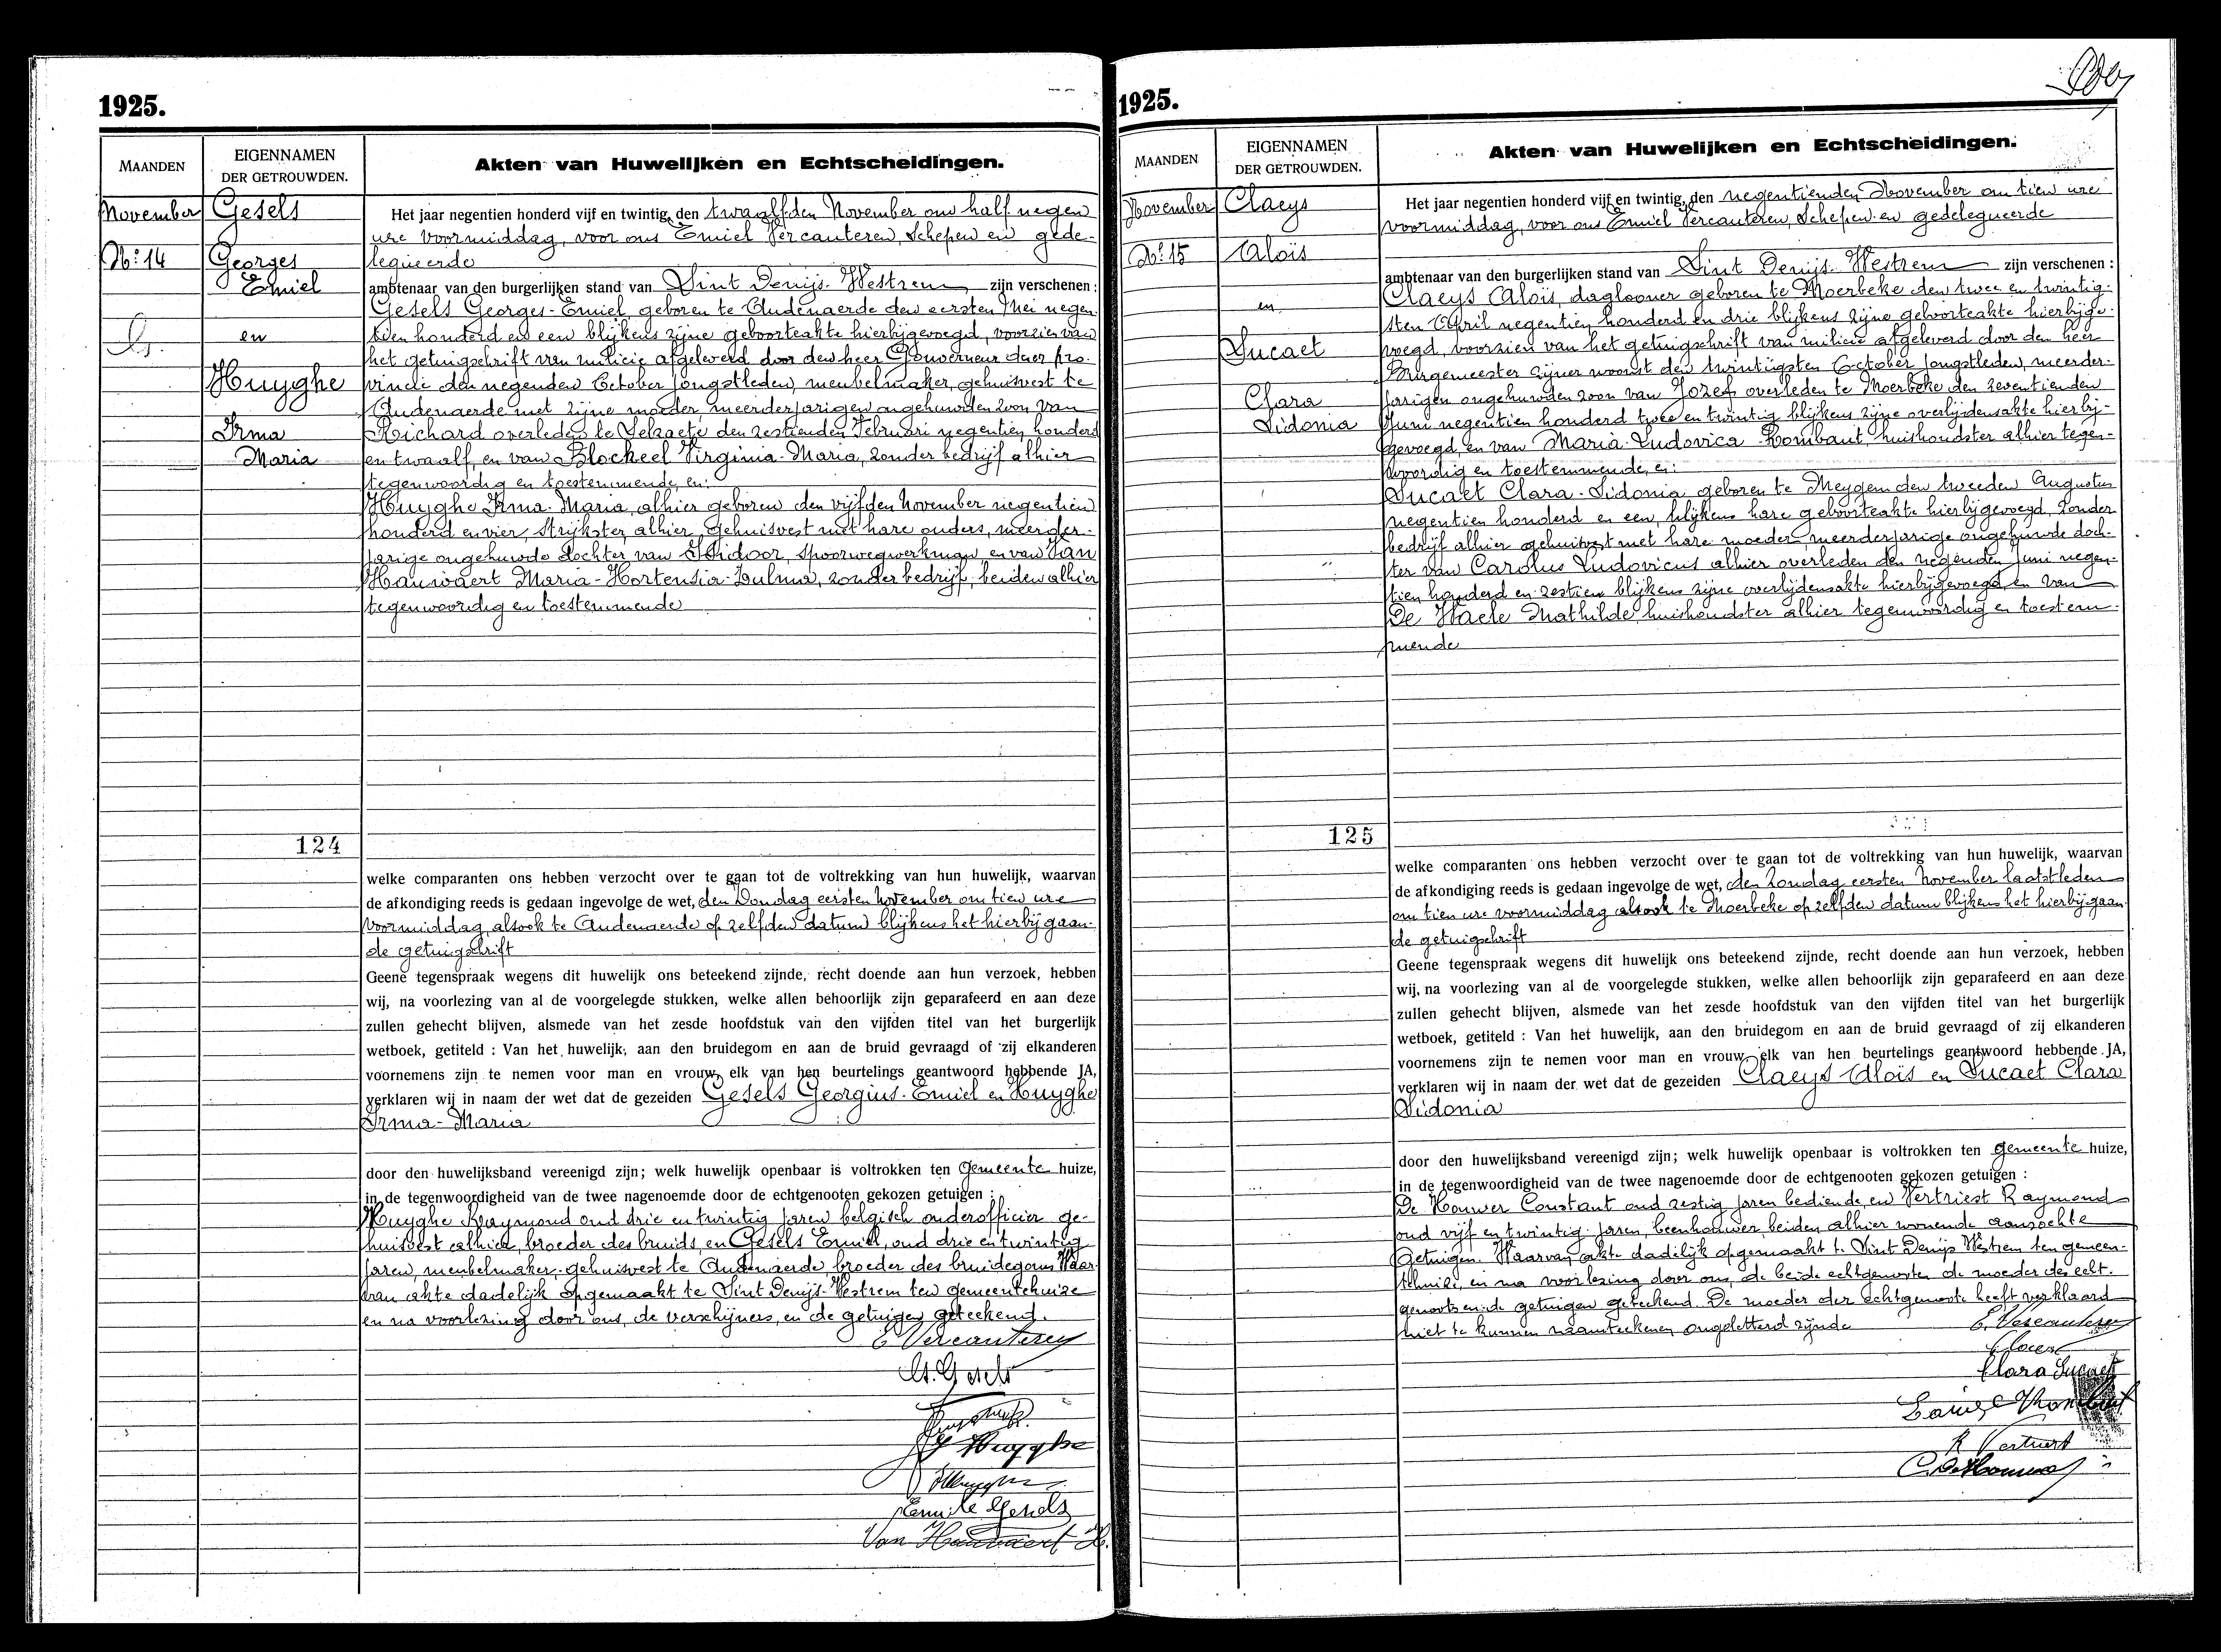 1925.
MAANDEN
EIGENNAMEN
DER GETROUWDEN.
Akten van Huwelijken en Echtscheidingen.
November
Gesels
No: 14
Georges
Emiel
en
Huyghe
Irma
Maria
124
Het jaar negentien honderd vijf en twintig, den twaalfden November om half negen
ure voormiddag, voor ons Emiel Vercauteren, Schepen en gede-
legueerde
ambtenaar van den burgerlijken stand van Sint Denijs-Westrem zijn verschenen:
Gesels Georges-Emiel, geboren te Audenaerde den eersten Mei negen-
tien honderd en een blijkens zijne geboorteakte hierbijgevoegd, voorzien van
het getuigschrift van milicie afgeleverd door den heer Gouverneur dezer pro-
vincie den negenden October jongstleden, meubelmaker, gehuisvest te
Audenaerde met zijne moeder, meerderjarigen ongehuwden zoon van
Richard overleden te Selzaete den zestienden Februari negentien honderd
en twaalf, en van Blockeel Virginia-Maria, zonder bedrijf alhier
tegenwoordig en toestemmende en:
Huyghe Irma-Maria, alhier geboren den vijfden November negentien
honderd en vier, strijkster alhier gehuisvest met hare ouders, meerder-
jarige ongehuwde dochter van Isidoor, spoorwegwerkman en van Van
Hauwaert Maria-Hortensia-Zulma, zonder bedrijf, beiden alhier
tegenwoordig en toestemmende
welke comparanten ons hebben verzocht over te gaan tot de voltrekking van hun huwelijk, waarvan
de afkondiging reeds is gedaan ingevolge de wet, den Zondag eersten November om tien ure
voormiddag, alsook te Audenaerde op zelfden datum blijkens het hierbijgaan-
de getuigschrift
Geene tegenspraak wegens dit huwelijk ons beteekend zijnde, recht doende aan hun verzoek, hebben
wij, na voorlezing van al de voorgelegde stukken, welke allen behoorlijk zijn geparafeerd en aan deze
zullen gehecht blijven, alsmede van het zesde hoofdstuk van den vijfden titel van het burgerlijk
wetboek, getiteld : Van het huwelijk, aan den bruidegom en aan de bruid gevraagd of zij elkanderen
voornemens zijn te nemen voor man en vrouw, elk van hen beurtelings geantwoord hebbende JA,
verklaren wij in naam der wet dat de gezeiden Gesels Georgius-Emiel en Huyghe
Irma-Maria
door den huwelijksband vereenigd zijn; welk huwelijk openbaar is voltrokken ten Gemeente huize,
in de tegenwoordigheid van de twee nagenoemde door de echtgenooten gekozen getuigen :
Huyghe Raymond oud drie en twintig jaren belgisch onderofficier ge-
huisvest alhier, broeder des bruids, en Gesels Emiel, oud drie en twintig
jaren, meubelmaker, gehuisvest te Audenaerde, broeder des bruidegoms Waar-
van akte dadelijk opgemaakt te Sint Denijs-Westrem ten gemeentehuize
en na voorlezing door ons, de verschijners, en de getuigen geteekend.
E Vercauteren
G. Gesels
Huyghe
Emile Gesels
Van Hauwaert H.
1925.
MAANDEN
EIGENNAMEN
DER GETROUWDEN.
Akten van Huwelijken en Echtscheidingen.
November
Claeys
No: 15
Aloïs
en
Sucaet
Clara
Sidonia
125
Het jaar negentien honderd vijf en twintig, den negentienden November om tien ure
voormiddag, voor ons Emiel Vercauteren, Schepen en gedelegueerde
ambtenaar van den burgerlijken stand van Sint Denijs-Westrem zijn verschenen :
Claeys Aloïs, daglooner geboren te Moerbeke den twee en twintig-
sten April negentien honderd en drie blijkens zijne geboorteakte hierbijge-
voegd, voorzien van het getuigschrift van milicie afgeleverd door den heer
Burgemeester zijner woonst den twintigsten October jongstleden, meerder-
jarigen ongehuwden zoon van Jozef overleden te Moerbeke den zeventienden
Juni negentien honderd twee en twintig blijkens zijne overlijdensakte hierbij-
gevoegd, en van Maria-Ludovica Rombaut huishoudster alhier tegen-
woordig en toestemmende, en:
Sucaet Clara-Sidonia geboren te Meygem den tweeden Augustus
negentien honderd en een, blijkens hare geboorteakte hierbijgevoegd, zonder
bedrijf alhier gehuisvest met hare moeder, meerderjarige ongehuwde doch-
ter van Carolus Ludovicus alhier overleden den negenden Juni negen-
tien honderd en zestien blijkens zijne overlijdensakte hierbijgevoegd en van
De Waele Mathilde huishoudster alhier tegenwoordig en toestem-
mende
welke comparanten ons hebben verzocht over te gaan tot de voltrekking van hun huwelijk, waarvan
de afkondiging reeds is gedaan ingevolge de wet, den Zondag eersten November laatstleden
om tien ure voormiddag alsook te Moerbeke op zelfden datum blijkens het hierbijgaan-
de getuigschrift
Geene tegenspraak wegens dit huwelijk ons beteekend zijnde, recht doende aan hun verzoek, hebben
wij, na voorlezing van al de voorgelegde stukken, welke allen behoorlijk zijn geparafeerd en aan deze
zullen gehecht blijven, alsmede van het zesde hoofdstuk van den vijfden titel van het burgerlijk
wetboek, getiteld : Van het huwelijk, aan den bruidegom en aan de bruid gevraagd of zij elkanderen
voornemens zijn te nemen voor man en vrouw, elk van hen beurtelings geantwoord hebbende JA,
verklaren wij in naam der wet dat de gezeiden Claeys Aloïs en Sucaet Clara
Sidonia
door den huwelijksband vereenigd zijn; welk huwelijk openbaar is voltrokken ten gemeente huize,
in de tegenwoordigheid van de twee nagenoemde door de echtgenooten gekozen getuigen :
De Houwer Constant oud zestig jaren bediende, en Vertriest Raymond
oud vijf en twintig jaren, beenhouwer, beiden alhier wonende aanzochte
getuigen. Waarvan akte dadelijk opgemaakt te Sint Denijs Westrem ten gemeen-
tehuize, en na voorlezing door ons, de beide echtgenooten de moeder des echt-
genoots en de getuigen geteekend. De moeder der echtgenoote heeft verklaard
niet te kunnen naamteekenen ongeletterd zijnde
E. Vercauteren
Claeys
Clara Sucaet
R Vertriest
C. De Houwer